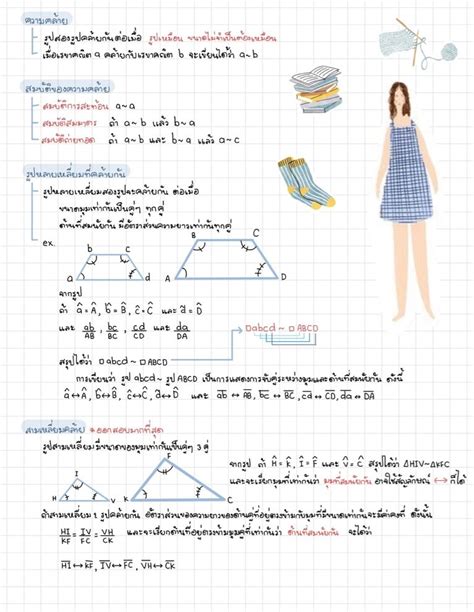 ความคล้าย
รูปสองรูปคล้ายกันต่อเมื่อ รูปเหมือน ขนาดไม่จำเป็นต้องเหมือน
เมื่อเรขาคณิต a คล้ายกับเรขาคณิต b จะเขียนได้ว่า a~b
สมบัติของความคล้าย
สมบัติการสะท้อน a~a
สมบัติสมมาตร ถ้า a~b แล้ว b~a
สมบัติถ่ายทอด ถ้า a~b และ b~a แล้ว a~c
รูปหลายเหลี่ยมที่คล้ายกัน
รูปหลายเหลี่ยมสองรูปจะคล้ายกัน ต่อเมื่อ
ขนาดมุมเท่ากันเป็นคู่ๆ ทุกคู่
ด้านที่สมนัยกัน มีอัตราส่วนความยาวเท่ากันทุกคู่
ex.
b c
a d
B C
A D
จากรูป
ถ้า â=Â, b̂=B̂, ĉ=Ĉ และ d̂=D̂
และ ab/AB, bc/BC, cd/CD และ da/DA
□abcd ~ □ABCD
สรุปได้ว่า □abcd ~ □ABCD
การเขียนว่า รูป abcd ~ รูป ABCD เป็นการแสดงการจับคู่ระหว่างมุมและด้านที่สมนัยกัน ดังนี้
â↔Â, b̂↔B̂, ĉ↔Ĉ, d̂↔D̂ และ ab ↔ AB, bc ↔ BC, cd ↔ CD, da ↔ DA
สามเหลี่ยมคล้าย *ออกสอบมากที่สุด
รูปสามเหลี่ยมมีขนาดของมุมเท่ากันเป็นคู่ๆ 3 คู่
I
H V
F
K C
จากรูป ถ้า Ĥ=K̂, Î=F̂ และ V̂=Ĉ สรุปได้ว่า ΔHIV~ΔKFC
และจะเรียกมุมที่เท่ากันว่า มุมที่สมนัยกัน อาจใช้สัญลักษณ์ ↔ ก็ได้
ถ้าสามเหลี่ยม 2 รูปคล้ายกัน อัตราส่วนของความยาวของด้านคู่ที่อยู่ตรงข้ามกับมุมที่มีขนาดเท่ากันจะมีค่าคงที่ ดังนั้น
HI/KF = IV/FC = VH/CK และจะเรียกด้านที่อยู่ตรงข้ามมุมคู่ที่เท่ากันว่า ด้านที่สมนัยกัน จะได้ว่า
HI↔KF, IV↔FC, VH↔CK